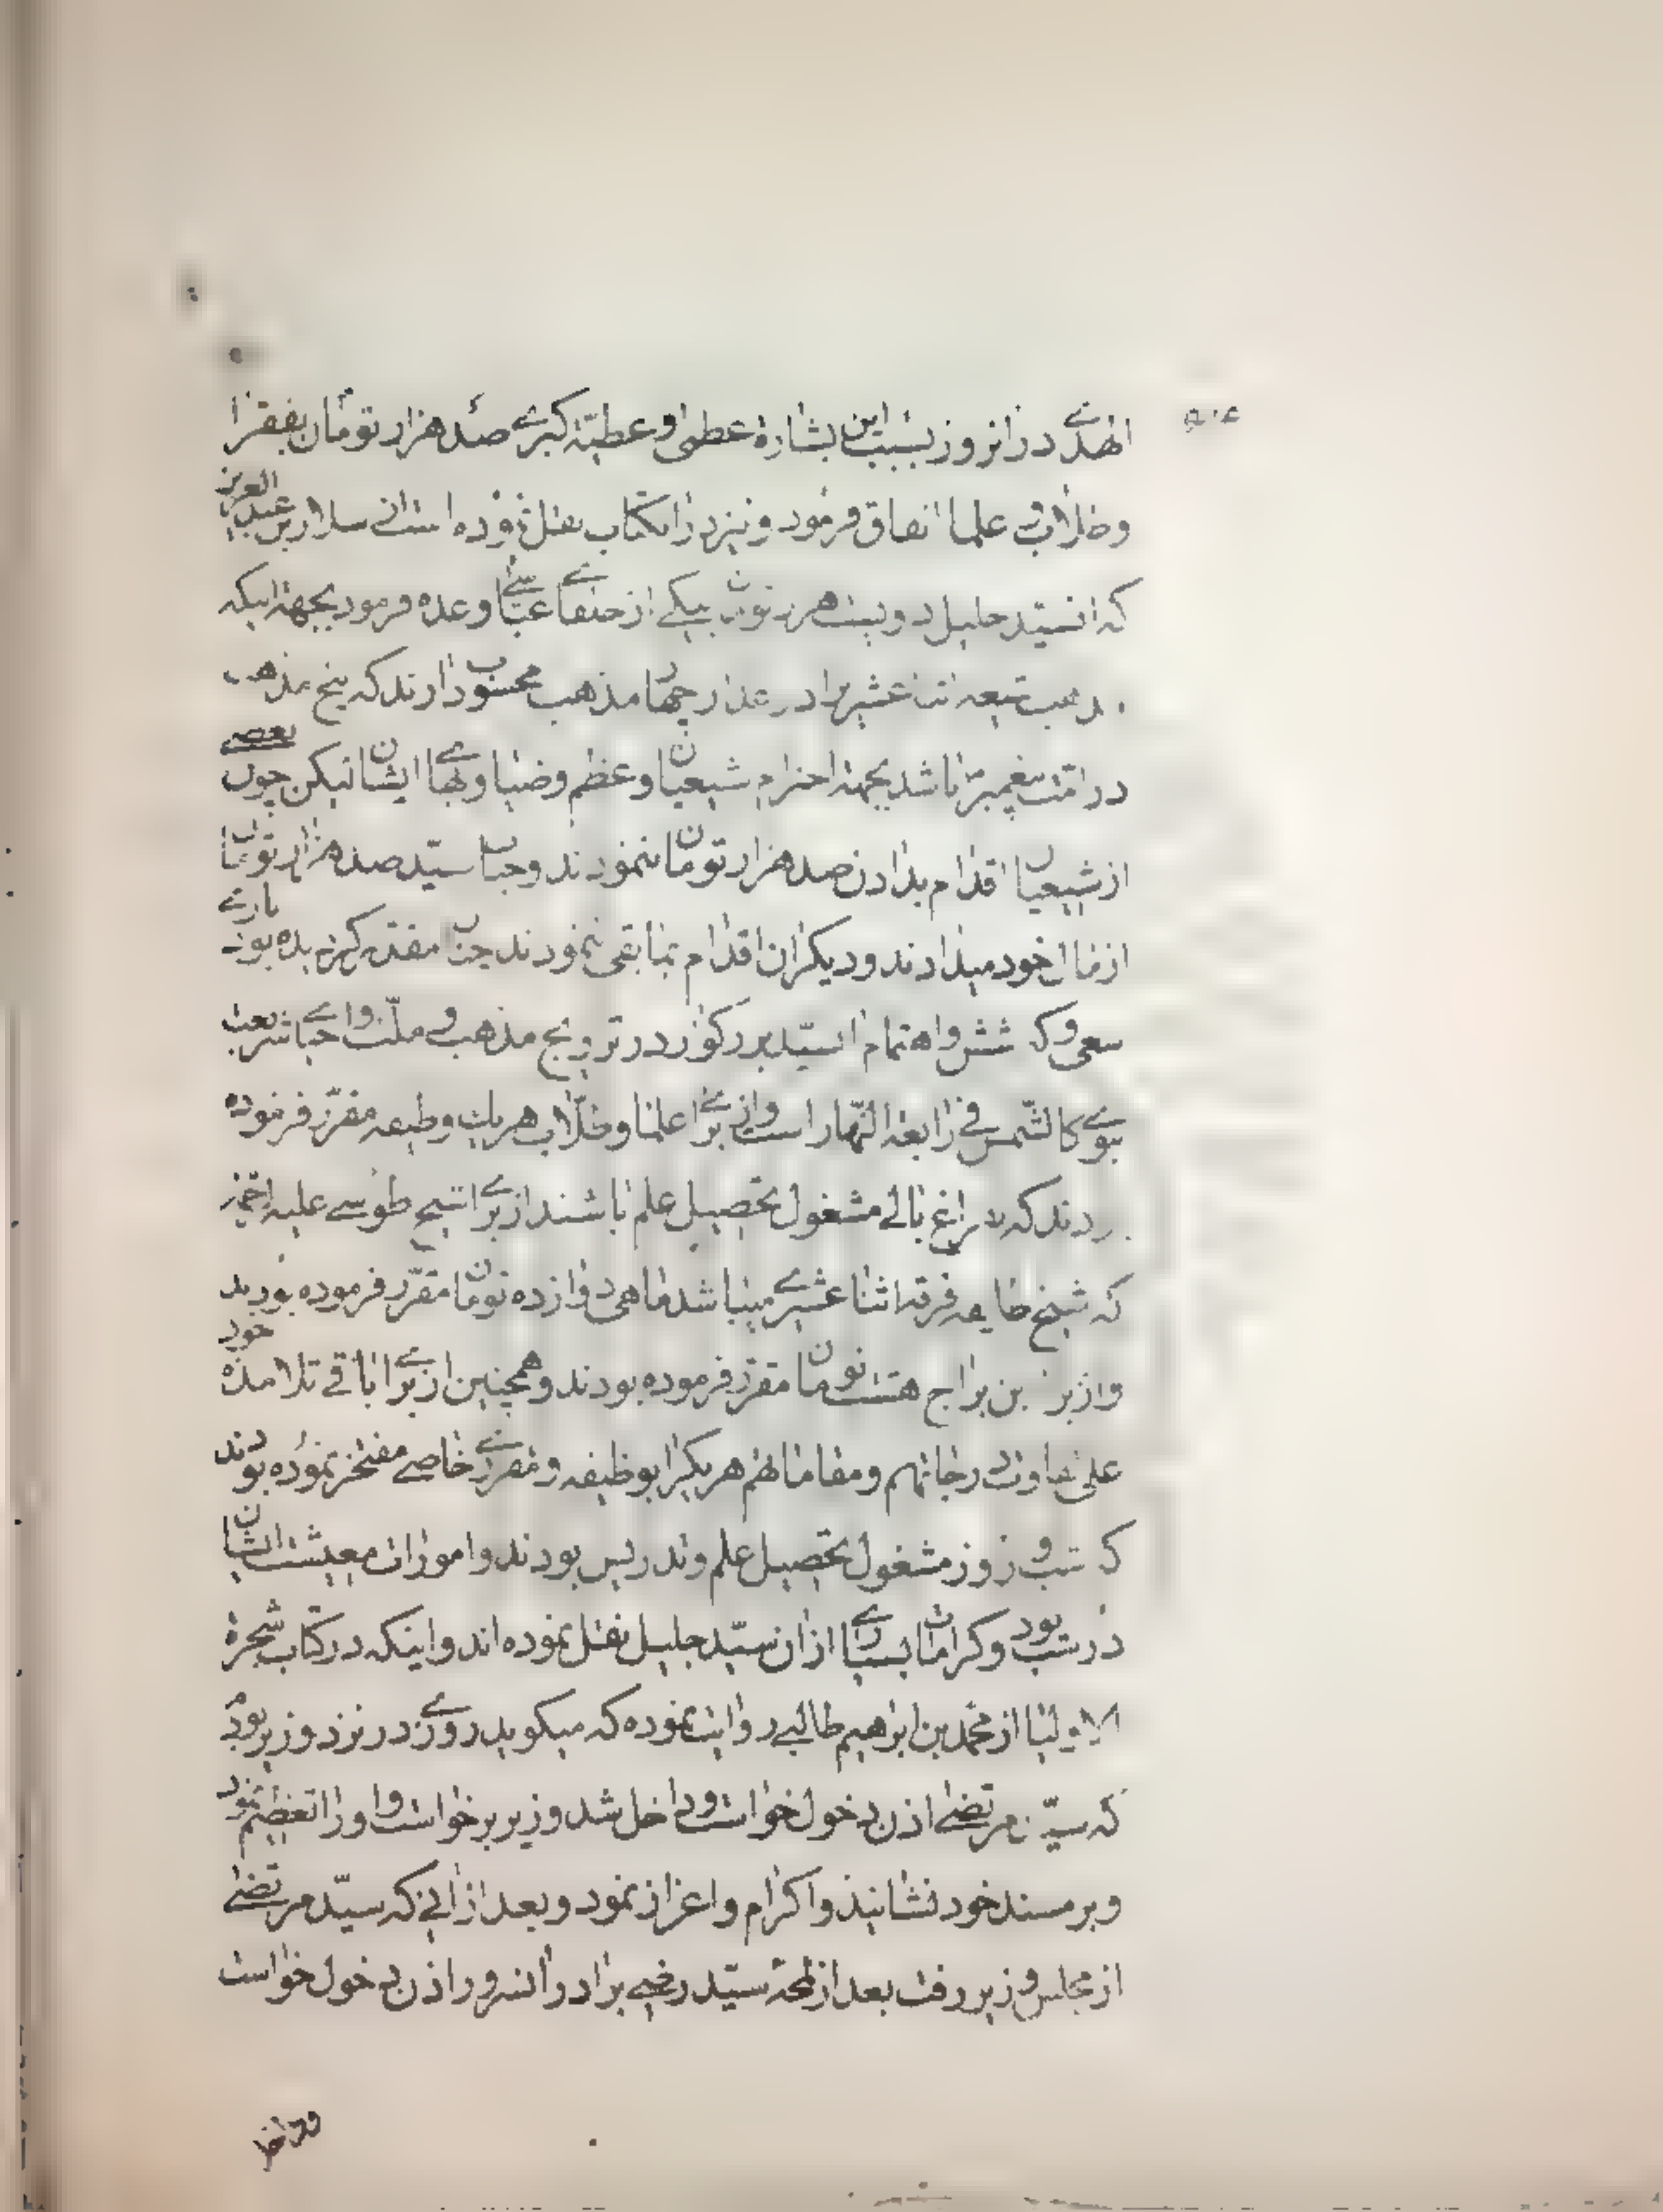 الهدی در انروز بسبب این بشارة عظمی و عطیّة کبری صد هزار تومان بفقرا
و طلاب و علما انفاق فرمود و نیز در انکتاب نقل نموده است از سلار بن عبد العزیز
که انسیّد جلیل دویست هزار تومان بیکی از خلفای عباسی وعده فرمود بجهة اینکه
مذهب شیعه اثنا عشریرا در عداد چهار مذهب محسوب دارند که پنج مذهب
در امّت پیغمبر باشد بجهة احترام شیعیان و عظم و ضیاء و بهای ایشان لیکن چون بعضی
از شیعیان اقدام بدادن صد هزار تومان ننمودند و جناب سیّد صد هزار تومان
از مال خود میدادند و دیکران اقدام بمابقی ننمودند چنان مقدّر کردیده بود باری
سعی و کوشش و اهتمام انسیّد بزرکوار در ترویج مذهب و ملّت و احیای شریعت
نبوی کالشّمس فی رابعة النّهار است و از برای علما و طلّاب هر یک وظیفه مقرّر فرموده
بودند که بفراغ بالی مشغول تحصیل علم باشند از برای شیخ طوسی علیه الرحمة
که شیخ طایفه فرقه اثنا عشری میباشد ماهی دوازده تومان مقرّر فرموده بودند
و از برای ابن براج هشت تومان مقرّر فرموده بودند و همچنین از برای باقی تلامذه خود
علی تفاوت درجاتهم و مقاماتهم هر یکرا بوظیفه و مقرری خاصی مفتخر نموده بودند
که شب و روز مشغول تحصیل علم و تدریس بودند و امورات معیشت ایشان
درست بود و کرامات بسیاری از ان سیّد جلیل نقل نموده اند و اینکه در کتاب شجرة
الاولیا از محمّد بن ابراهیم طالبی روایت نموده که میکوید روزی در نزد وزیر بودم
که سیّد مرتضی اذن دخول خواست و داخل شد وزیر برخواست و او را تعظیم نمود
و بر مسند خود نشانید و اکرام و اعزاز نمود و بعد از انی که سیّد مرتضی
از مجلس وزیر رفت بعد از لمحة سیّد رضی برادر انسرور اذن دخول خواست